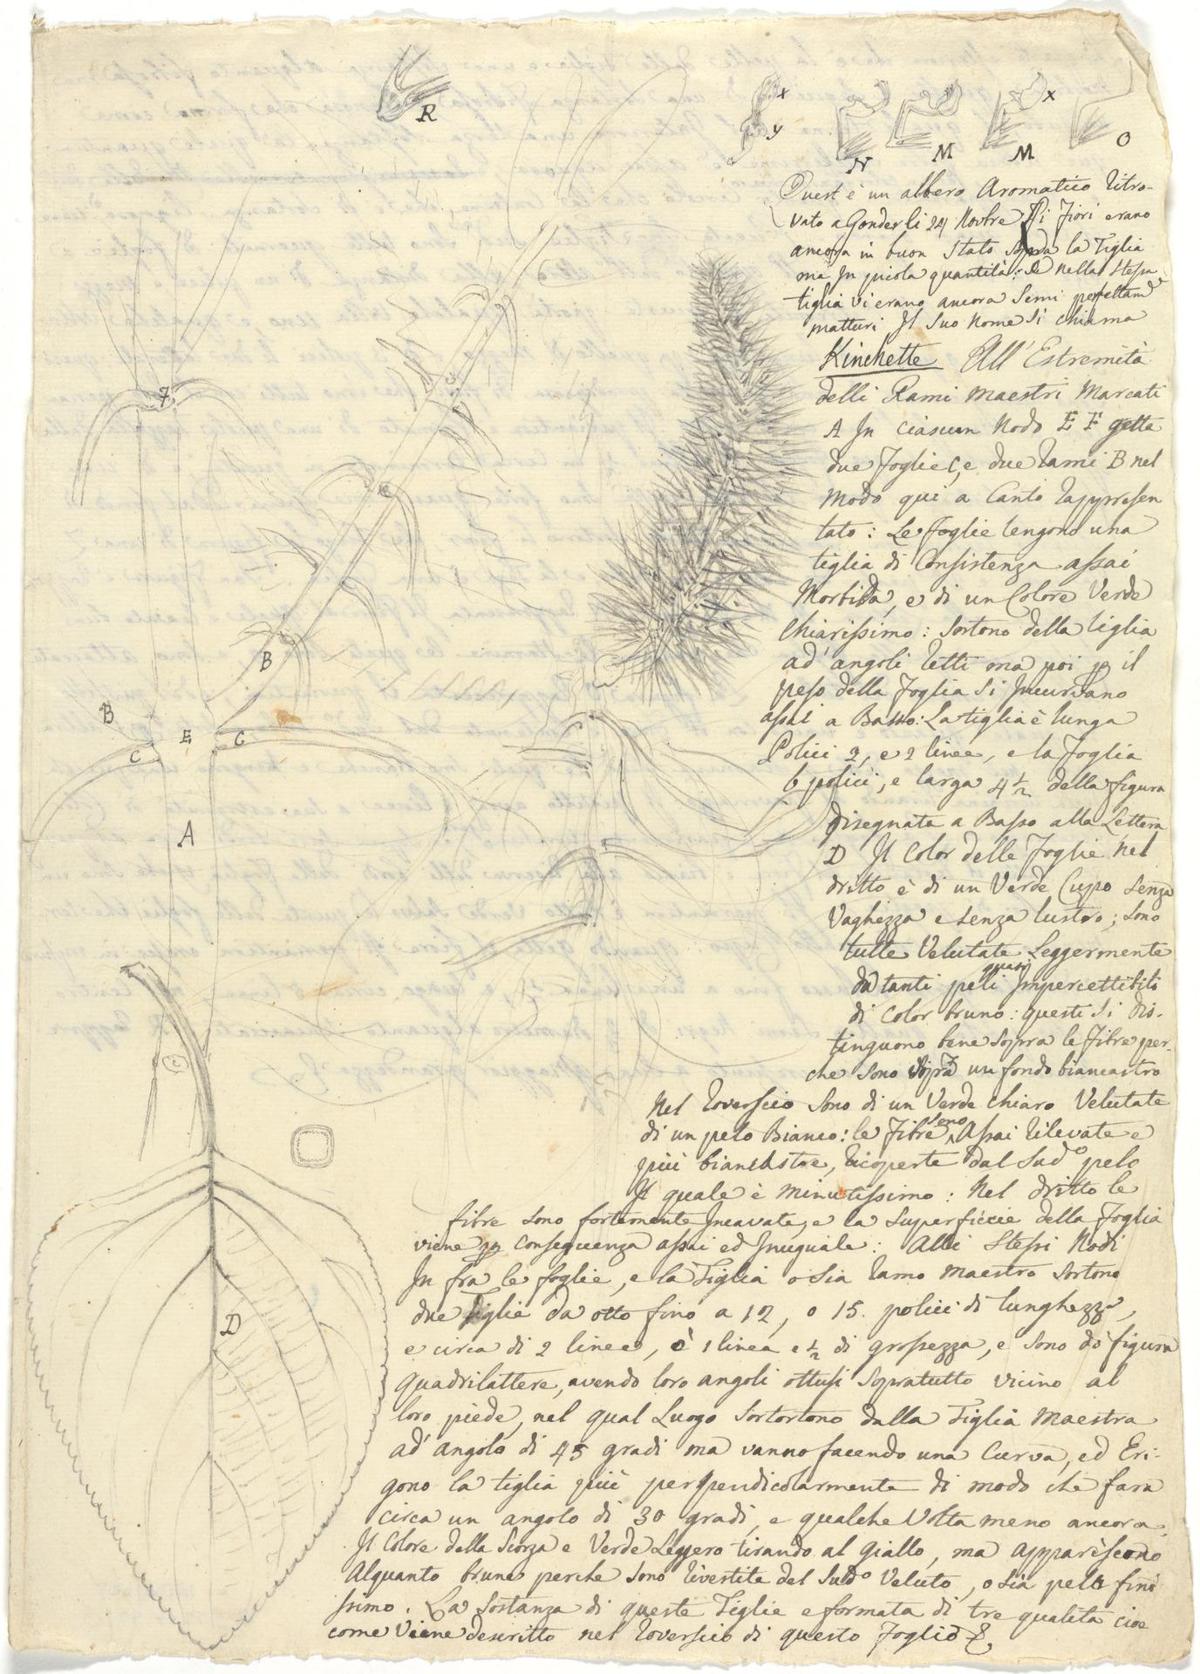 R
x
y
N
M
M
x
O
Quest è un albero Aromatico ritro-
vato a Gonder li 24 Novbre Di Fiori erano
ancora in buon Stato Sopra la Tiglia
ma In picola quantità: e nella Stessa
tiglia vi erano ancora Semi perfettam
matturi Il Suo Nome Si chiama
Kinchette All'Estremità
delli Rami Maestri Marcati
A In ciascun Nodo E F getta
due foglie C, e due Rami B nel
modo qui a Canto rappresen
tato: Le foglie tengono una
tiglia di Consistenza assai
Morbida, e di un Colore Verde
Chiarissimo: Sortono della tiglia
ad' angoli retti ma poi p il
peso della foglia Si Incurvano
assai a Basso: La tiglia è lunga
Polici 2, e 2 linee, e la foglia
6 polici, e larga 4 1/2 della figura
disegnata a Basso alla Lettera
D Il Color delle foglie nel
dritto è di un Verde Cupo Senza
Vaghezza e Senza lustro; Sono
tutte Velutate Leggermente
da tanti peli quasi Impercettibili
di Color bruno: questi Si dis-
tinguono bene Sopra le fibre per-
che Sono Sopra un fondo biancastro
Nel Roverscio Sono di un Verde Chiaro Velutate
di un pelo Bianco: le fibre Sono Assai rilevate e
più bianchstre, ricoperte dal Sudo pelo
Il quale è minutissimo: Nel dritto le
fibre Sono fortemente Incavate, e la Superficcie della foglia
viene p Conseguenza assai ed Inuguale: Alli Stessi Nodi
In fra le foglie, e la Tiglia o Sia ramo Maestro Sortono
due Tiglie da otto fino a 12, o 15. polici di lunghezza,
e circa di 2 linee, o 1 linea e 1/2 di grossezza, e Sono di figura
Quadrilattere, avendo loro angoli ottusi Sopratutto vicino al
loro piede, nel qual Luogo Sortortono dalla Tiglia Maestra
ad' angolo di 45 gradi ma vanno facendo una Curva, ed Eri-
gono la tiglia più perpendicolarmente di modo che fara
Circa un angolo di 30 gradi, e qualche Volta meno ancora.
Il Colore della Scorza e Verde Leggero tirando al Giallo, ma appariscono
Alquanto brune perche Sono rivestite del Sudo Veluto, o Sia pelo fini
ssimo. La Sostanza di queste Tiglie e formata di tre qualita cioe
come Viene descritto nel Roverscio di questo foglio
F
B
B
E
C
C
A
C
D